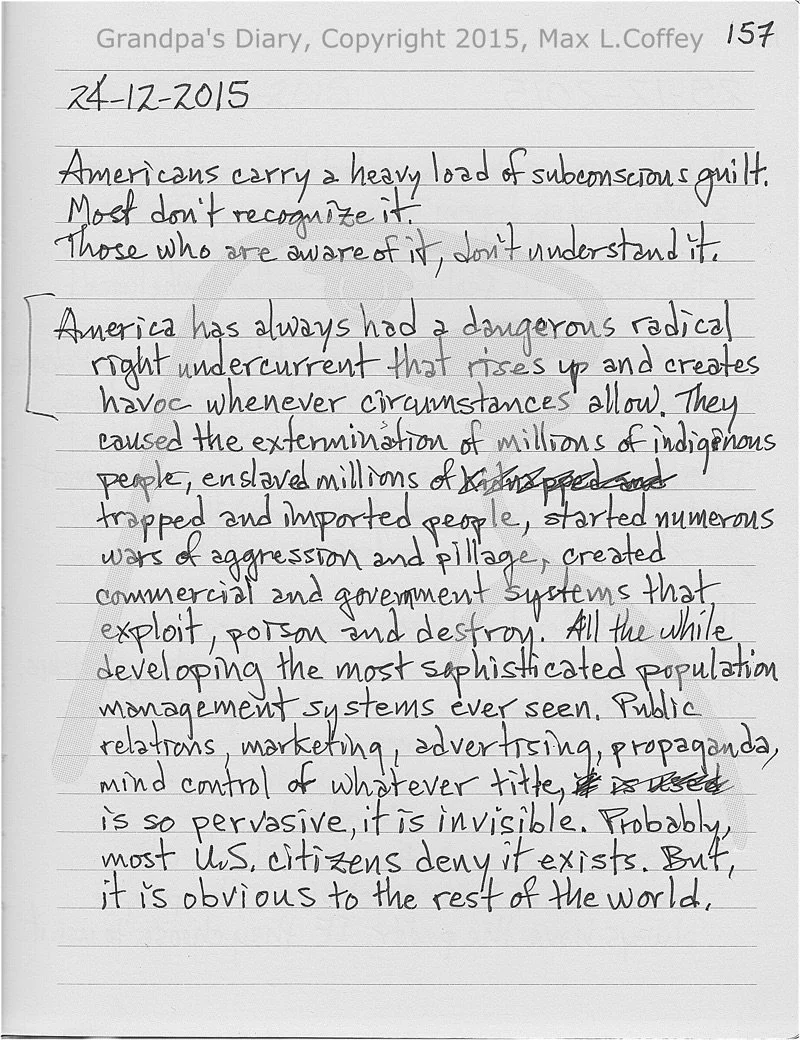 Grandpa's Diary, Copyright 2015, Max L.Coffey
157
24-12-2015
Americans carry a heavy load of subconscious guilt.
Most don't recognize it.
Those who are aware of it, don't understand it.
America has always had a dangerous radical
right undercurrent that rises up and creates
havoc whenever circumstances allow. They
caused the extermination of millions of indigenous
people, enslaved millions of kidnapped and
trapped and imported people, started numerous
wars of aggression and pillage, created
commercial and government systems that
exploit, poison and destroy. All the while
developing the most sophisticated population
management systems ever seen. Public
relations, marketing, advertising, propaganda,
mind control of whatever title, it is used
is so pervasive, it is invisible. Probably,
most U.S. citizens deny it exists. But,
it is obvious to the rest of the world.